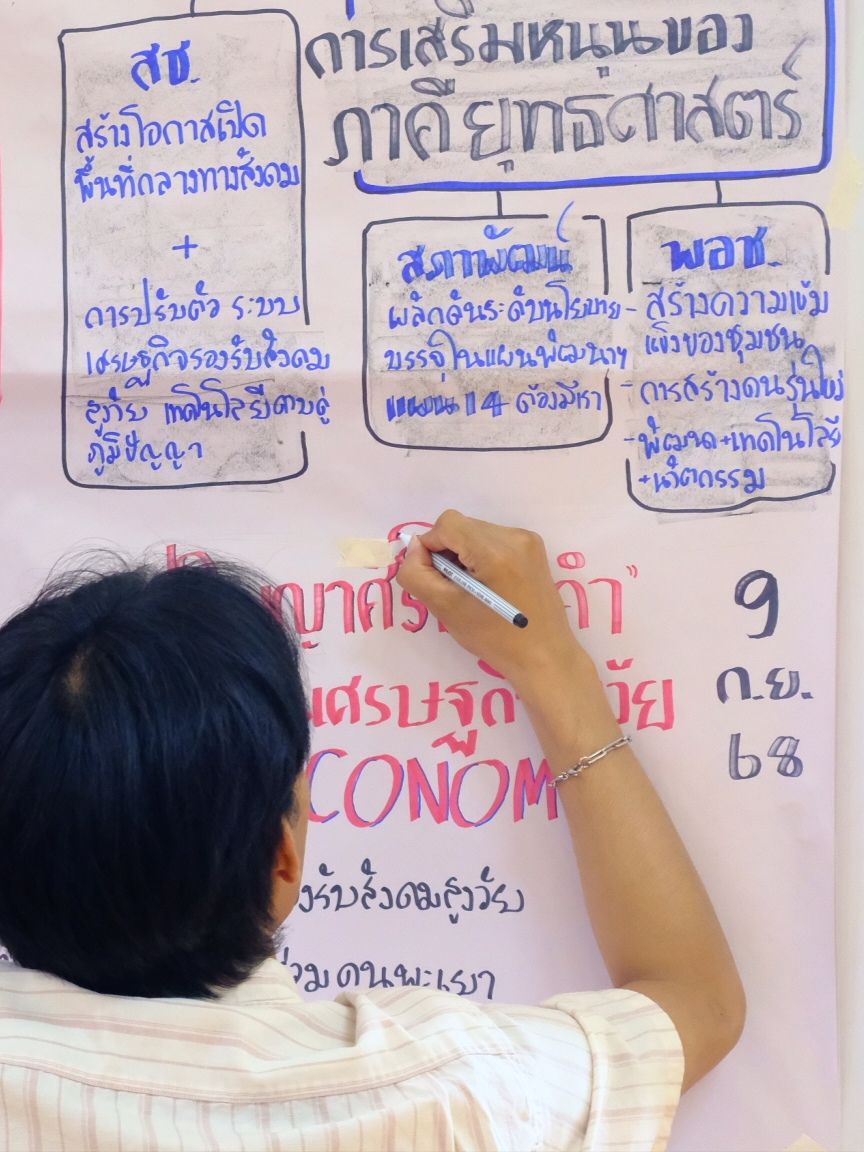 การเสริมหนุนของ
ภาคียุทธศาสตร์
สช.
สร้างโอกาสเปิด
พื้นที่กลางทางสังคม
+
การปรับตัว ระบบ
เศรษฐกิจรองรับสังคม
สูงวัย เทคโนโลยีควบคู่
ภูมิปัญญา
สภาพัฒน์
ผลักดันระดับนโยบาย
บรรจุในแผนพัฒนาฯ
แผน 14 ต้องมีเรา
พอช.
- สร้างความเข้ม
แข็งของชุมชน
- การสร้างคนรุ่นใหม่
- พัฒนา+เทคโนโลยี
+นวัตกรรม
คำ"
เศรษฐกิ
วัย
CONOM
9
ก.ย.
68
งรับสังคมสูงวัย
วม คนพะเยา